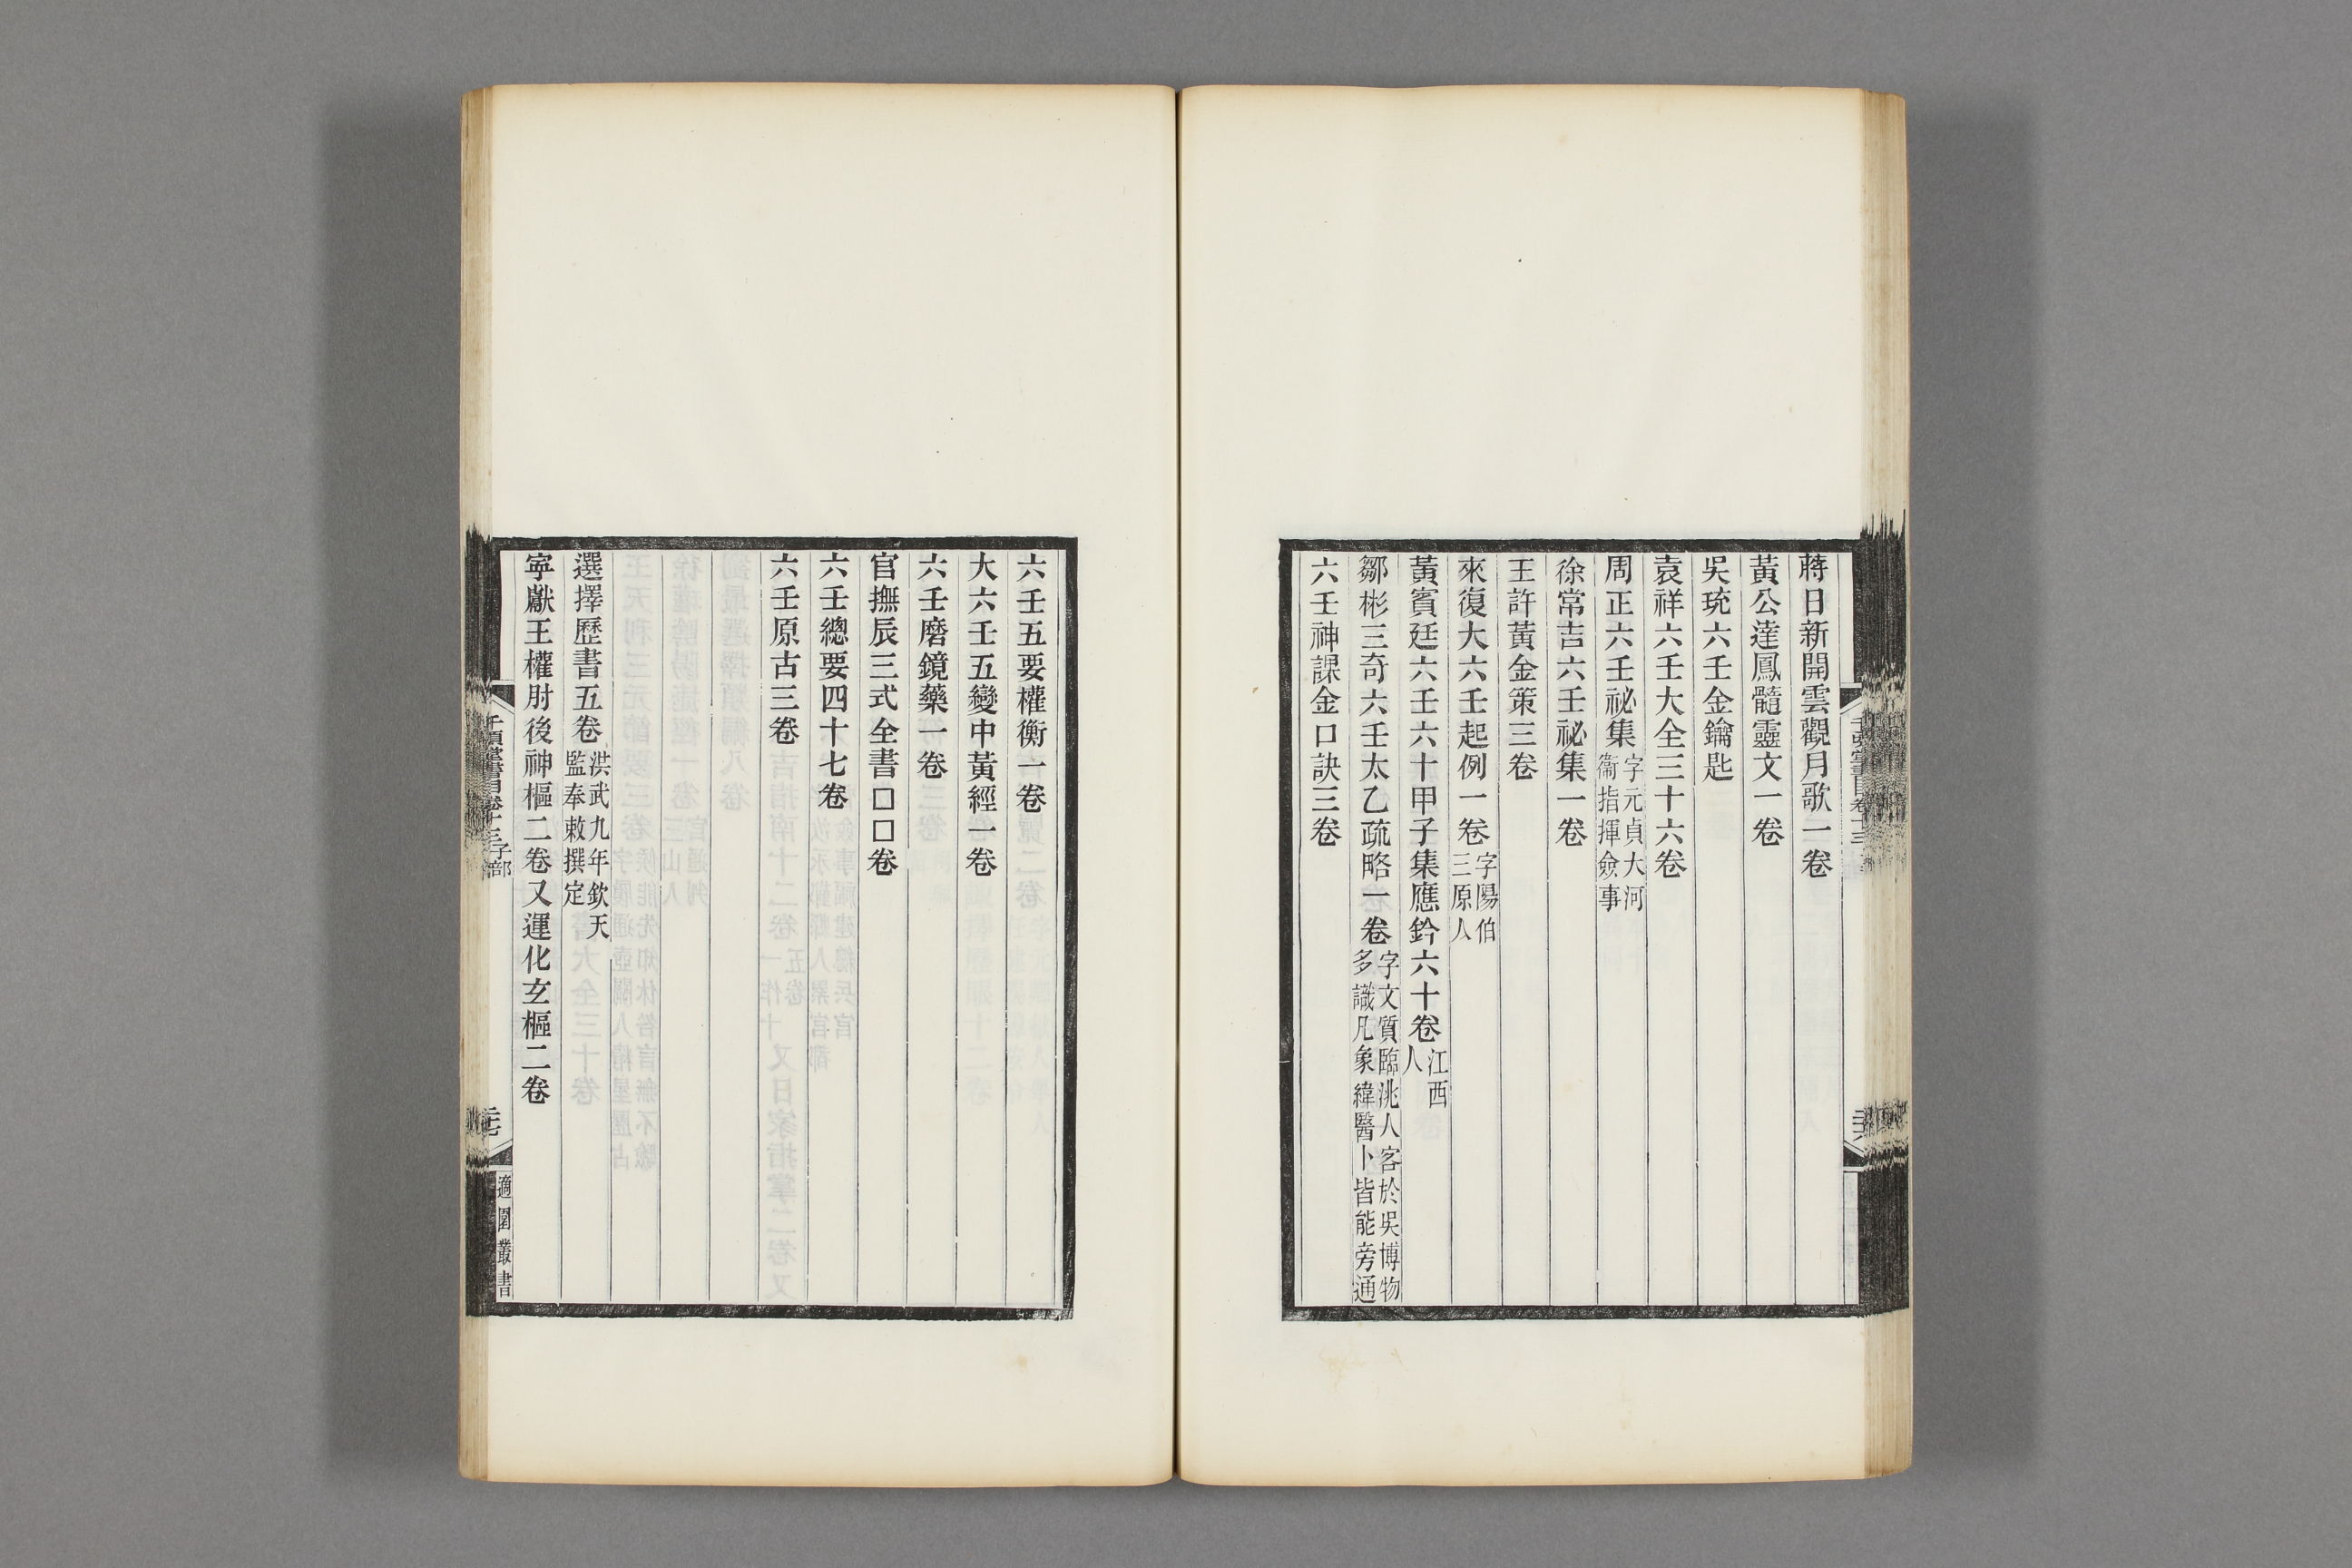 蔣日新開雲觀月歌一卷
黃公達鳳髓靈文一卷
吳珫六壬金鑰匙
袁祥六壬大全三十六卷
周正六壬祕集字元貞大河衞指揮僉事
徐常吉六壬祕集一卷
王許黃金策三卷
來復大六壬起例一卷字陽伯三原人
黃賓廷六壬六十甲子集應鈐六十卷江西人
鄒彬三奇六壬太乙疏略一卷字文質臨洮人客於吳博物多識凡象緯醫卜皆能旁通
六壬神課金口訣三卷
六壬五要權衡一卷
大六壬五變中黃經一卷
六壬磨鏡藥一卷
官撫辰三式全書□□卷
六壬總要四十七卷
六壬原古三卷
選擇歷書五卷洪武九年欽天監奉敕撰定
寧獻王權肘後神樞二卷又運化玄樞二卷
千頃堂書目卷十三子部
適園叢書